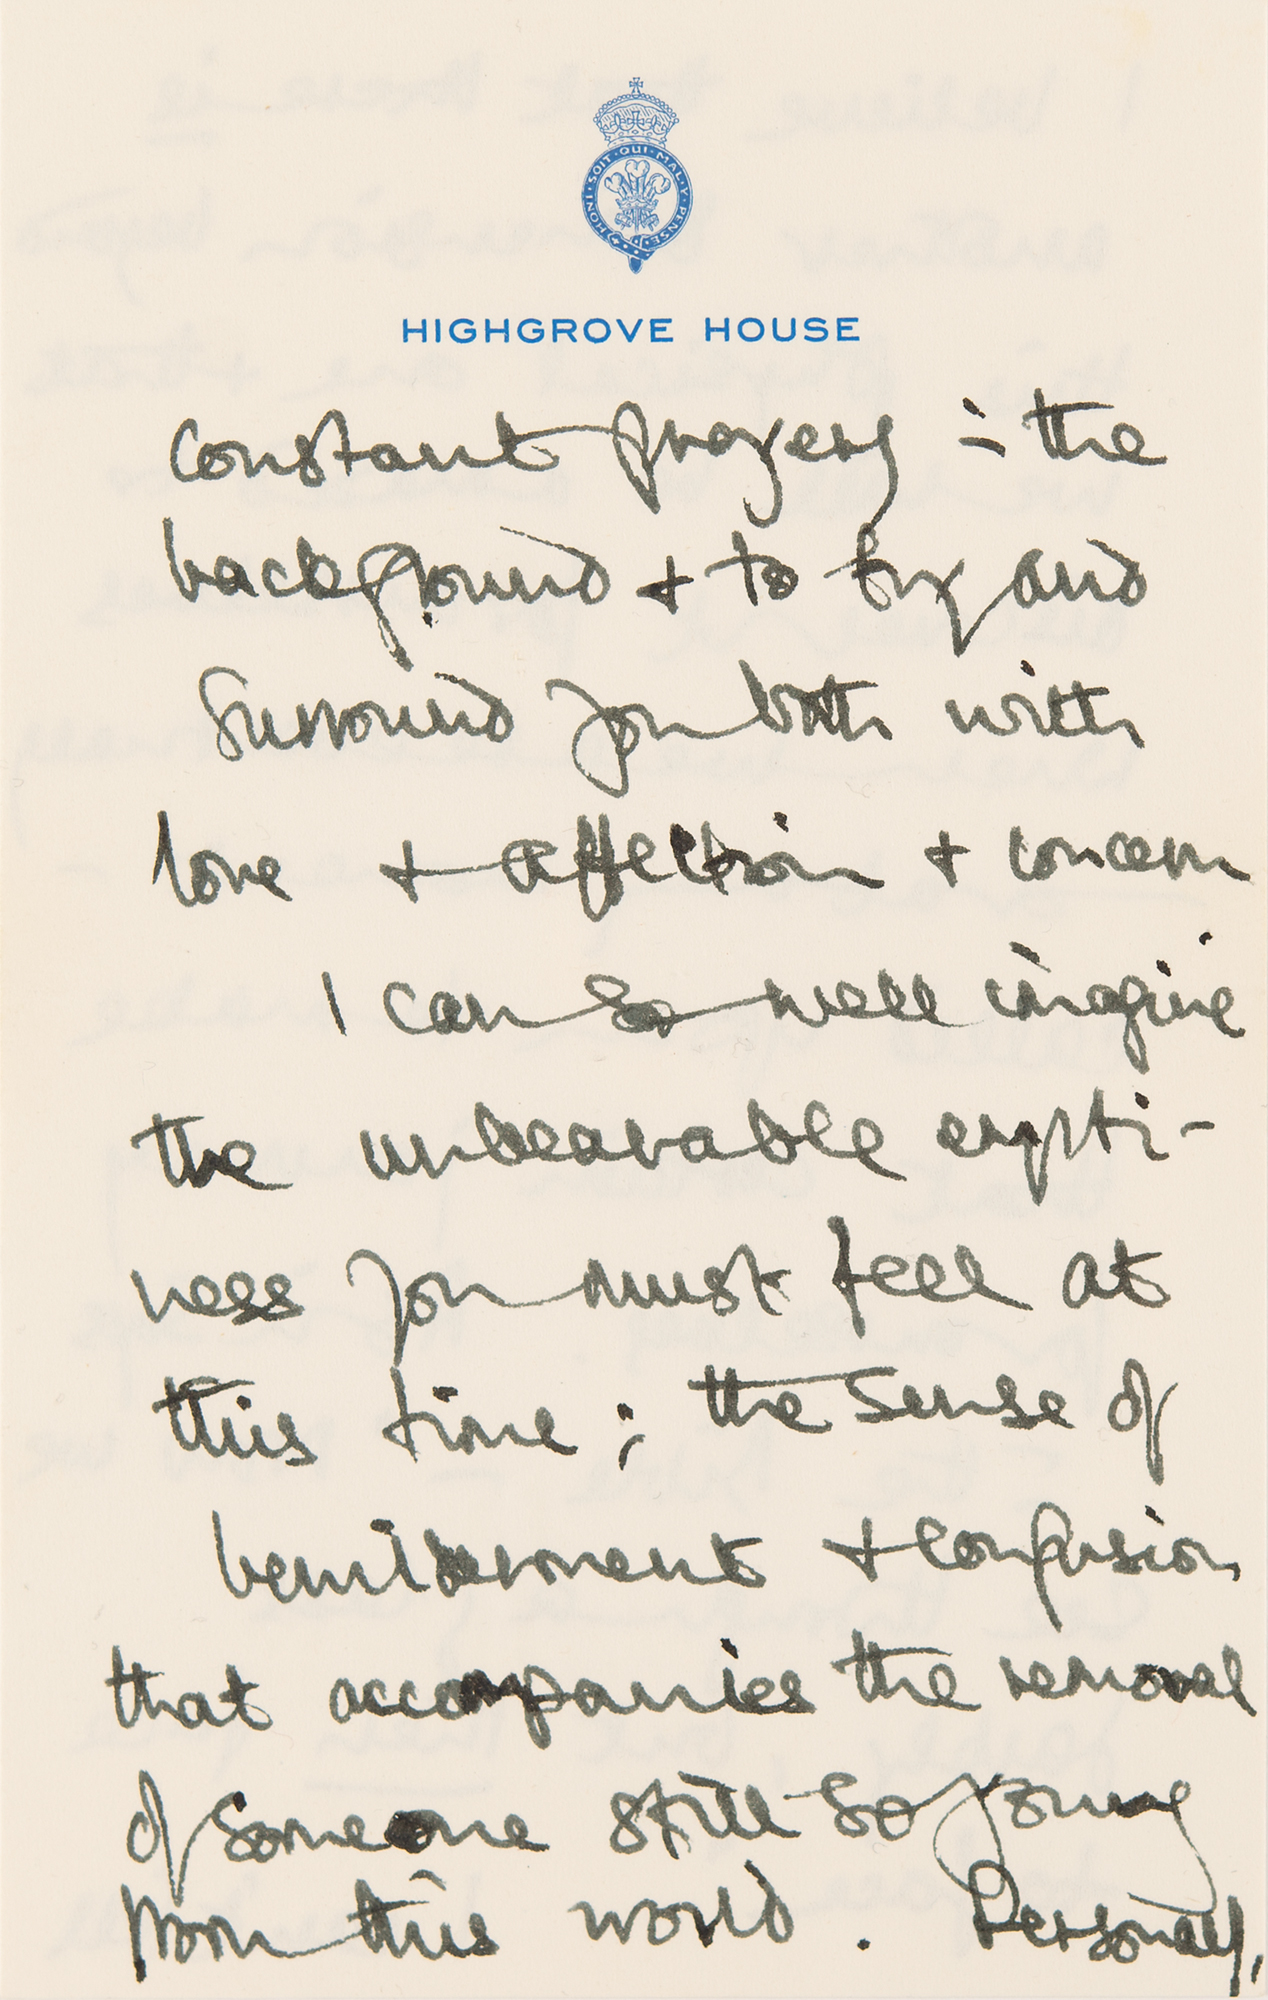 HONI · SOIT · QUI · MAL · Y · PENSE
HIGHGROVE HOUSE
constant prayers in the
background + to try and
surround you both with
love + affection + concern
I can so well imagine
the unbearable empti-
ness you must feel at
this time; the sense of
bewilderment + confusion
that accompanies the removal
of someone still so young
from this world. Personally,